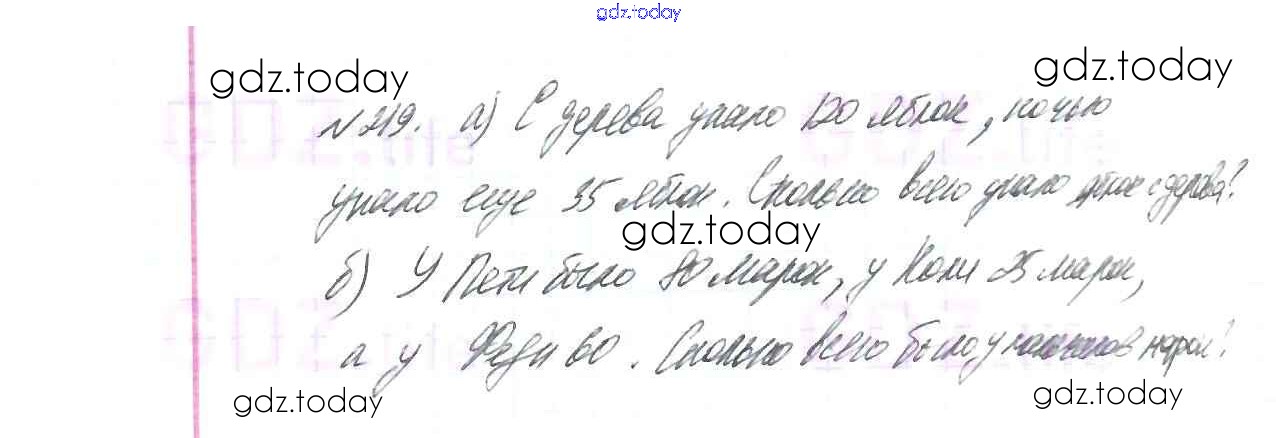 gdz.today
gdz.today
gdz.today
№ 219. а) С дерева упало 120 яблок, ночью
упало еще 35 яблок. Сколько всего упало яблок с дерева?
gdz.today
б) У Пети было 80 марок, у Коли 25 марок,
а у Феди 60. Сколько всего было у мальчиков марок?
gdz.today
gdz.today